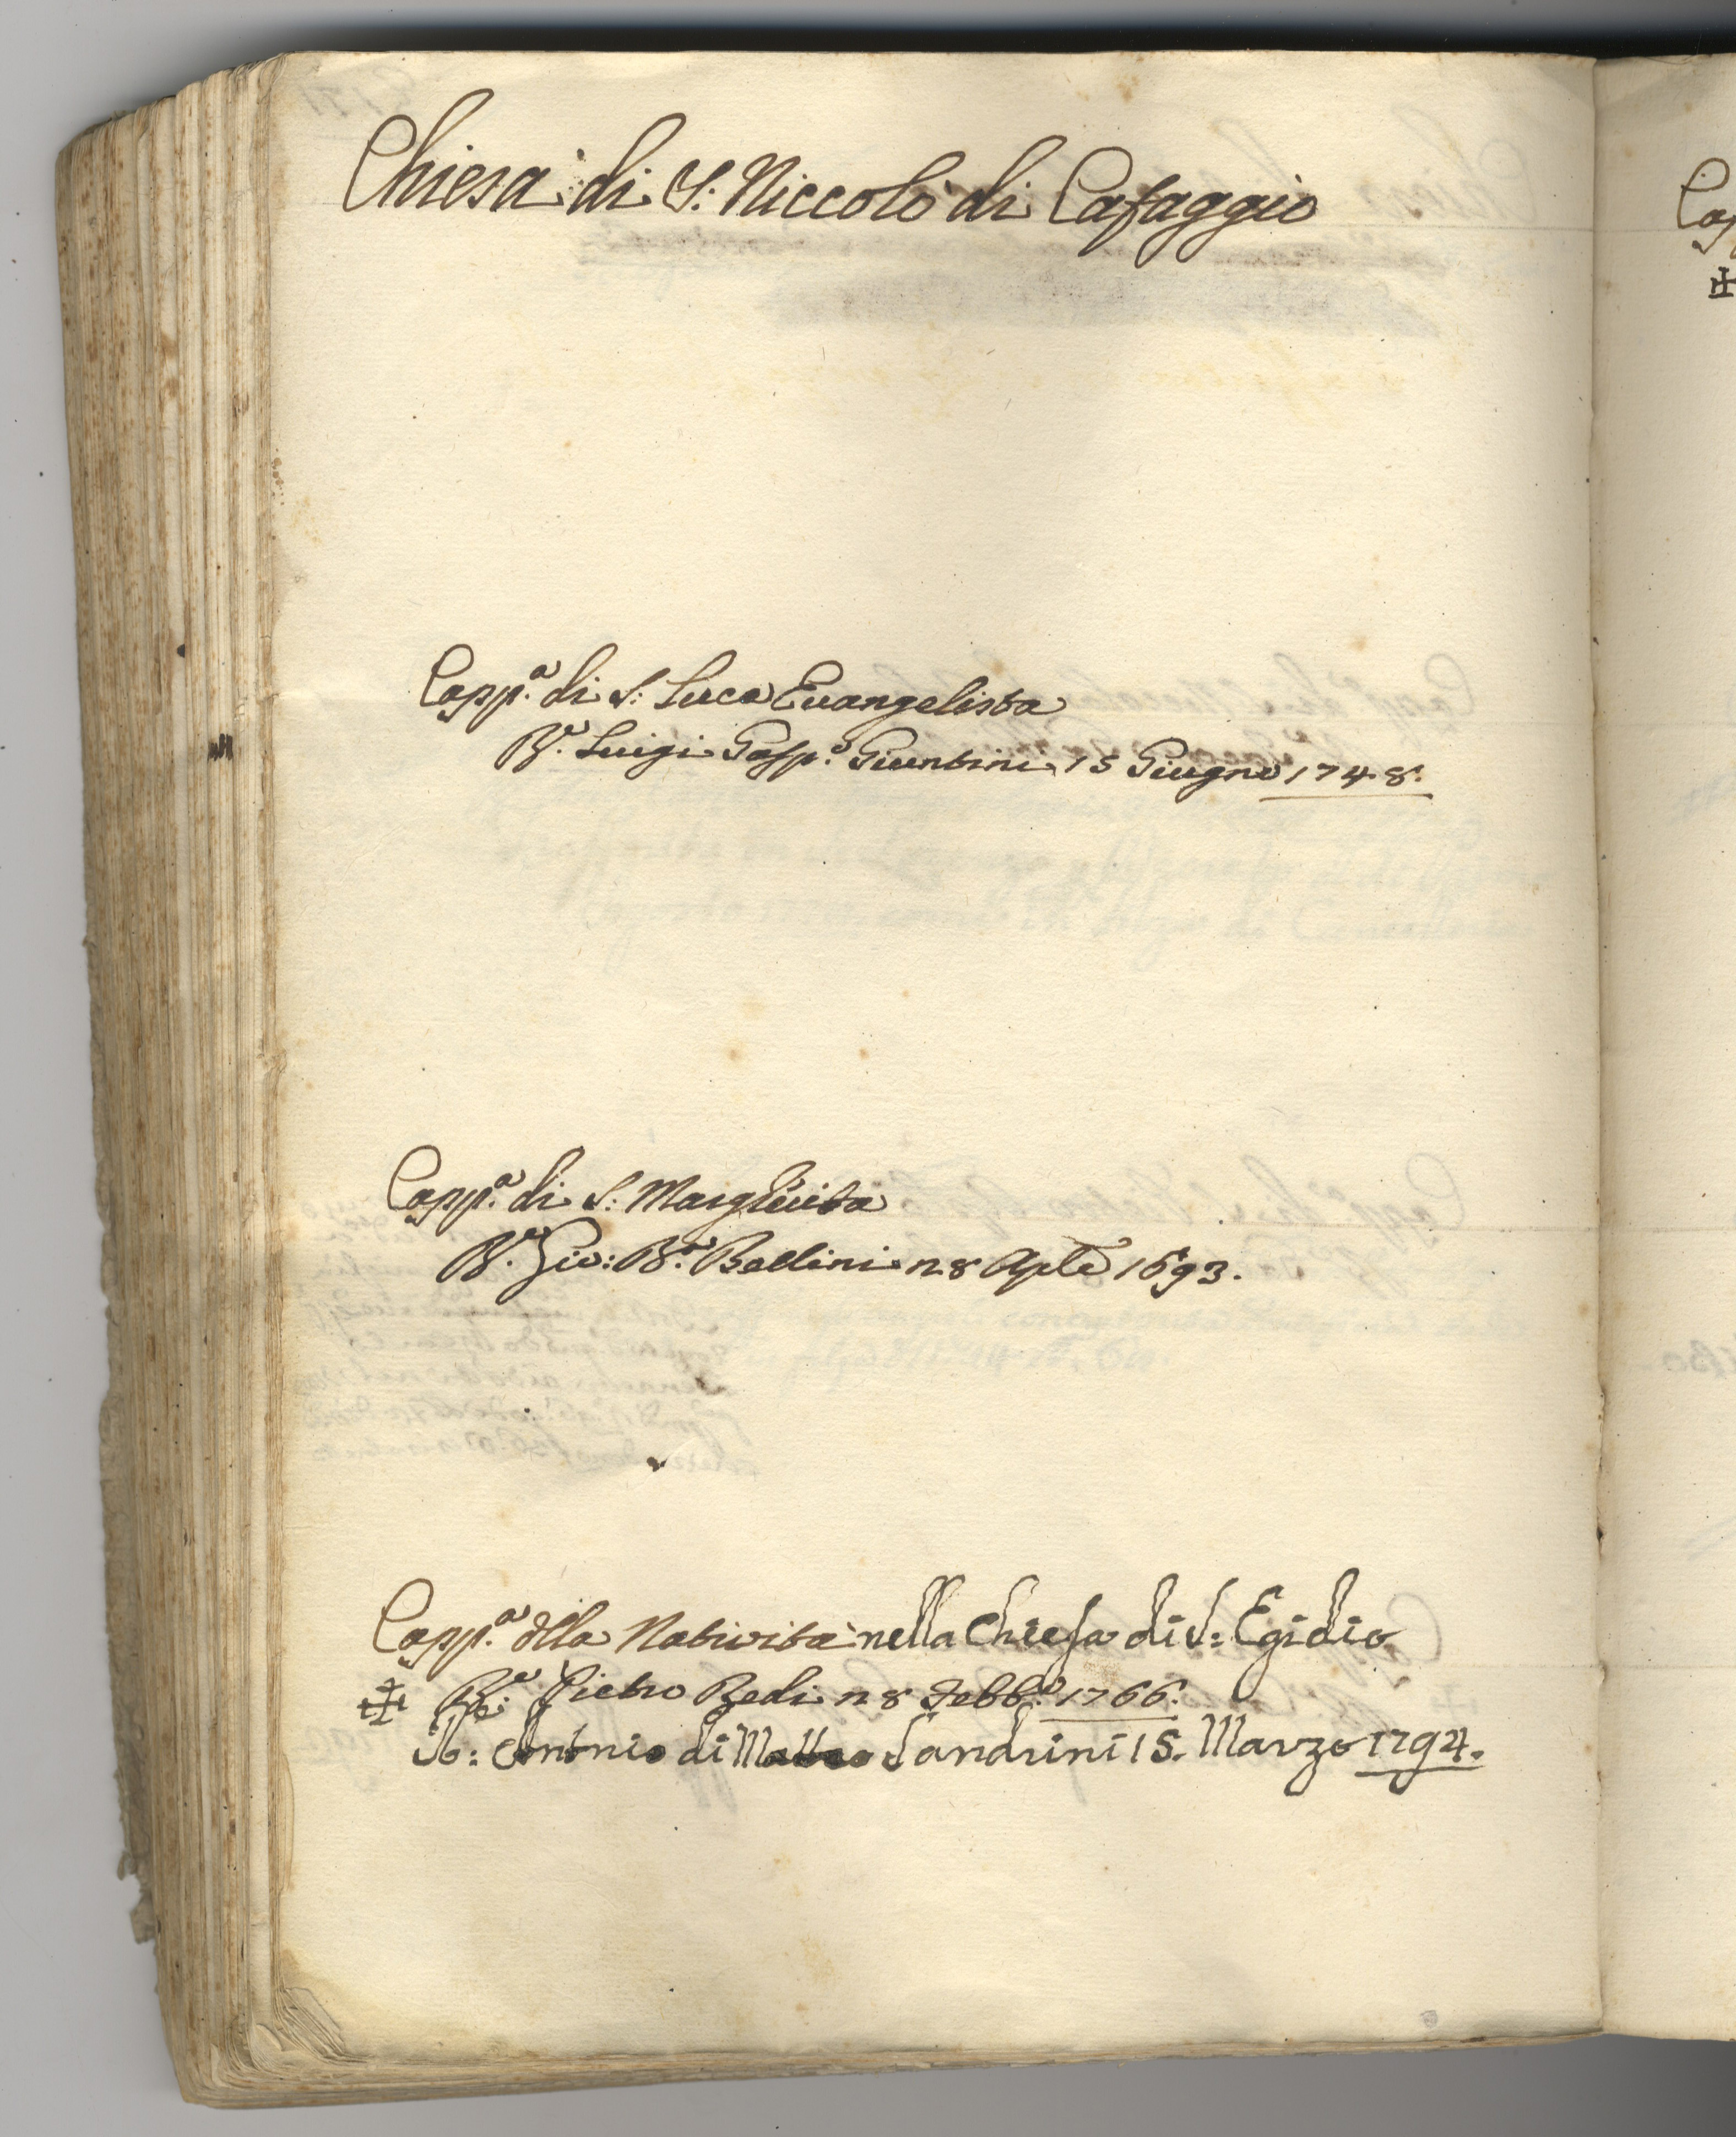 Chiesa di S: Niccolò di Cafaggio
Capp.a di S: Luca Evangelista
R.e Luigi Gasp.o Giuntini 15 Giugno 1748.
Capp.a di S: Margherita
R.e Gio: B.a Bellini 28 Aple 1693.
Capp.a della Natività nella Chiesa di S: Egidio
R.e Pietro Redi 28 Febb.o 1766.
Antonio di Matteo Sandrini 15. Marzo 1794.
Cap